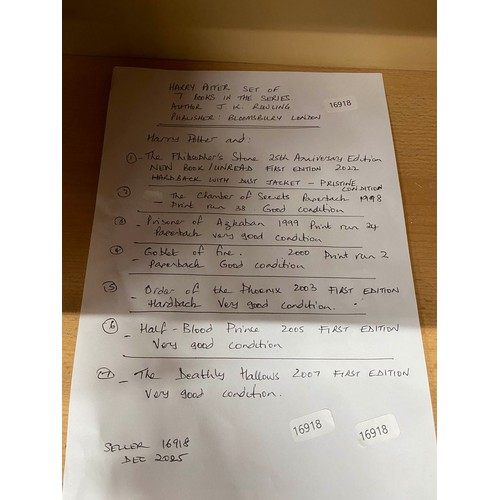 HARRY POTTER SET OF
7 BOOKS IN THE SERIES
AUTHOR J. K. ROWLING
PUBLISHER: BLOOMSBURY LONDON
16918
Harry Potter and:
1 - The Philosopher's Stone 25th Anniversary Edition
NEW BOOK/UNREAD FIRST EDITION 2022
HARDBACK WITH DUST JACKET - PRISTINE CONDITION
2 - The Chamber of Secrets Paperback 1998
Print run 38 Good condition
3 - Prisoner of Azkaban 1999 Print run 24
Paperback very good condition
4 - Goblet of fire. 2000 Print run 2
Paperback Good condition
5 - Order of the Phoenix 2003 FIRST EDITION
Hardback Very good condition.
6 - Half-Blood Prince 2005 FIRST EDITION
Very good condition
7 - The Deathly Hallows 2007 FIRST EDITION
Very good condition.
16918
16918
SELLER 16918
DEC 2025